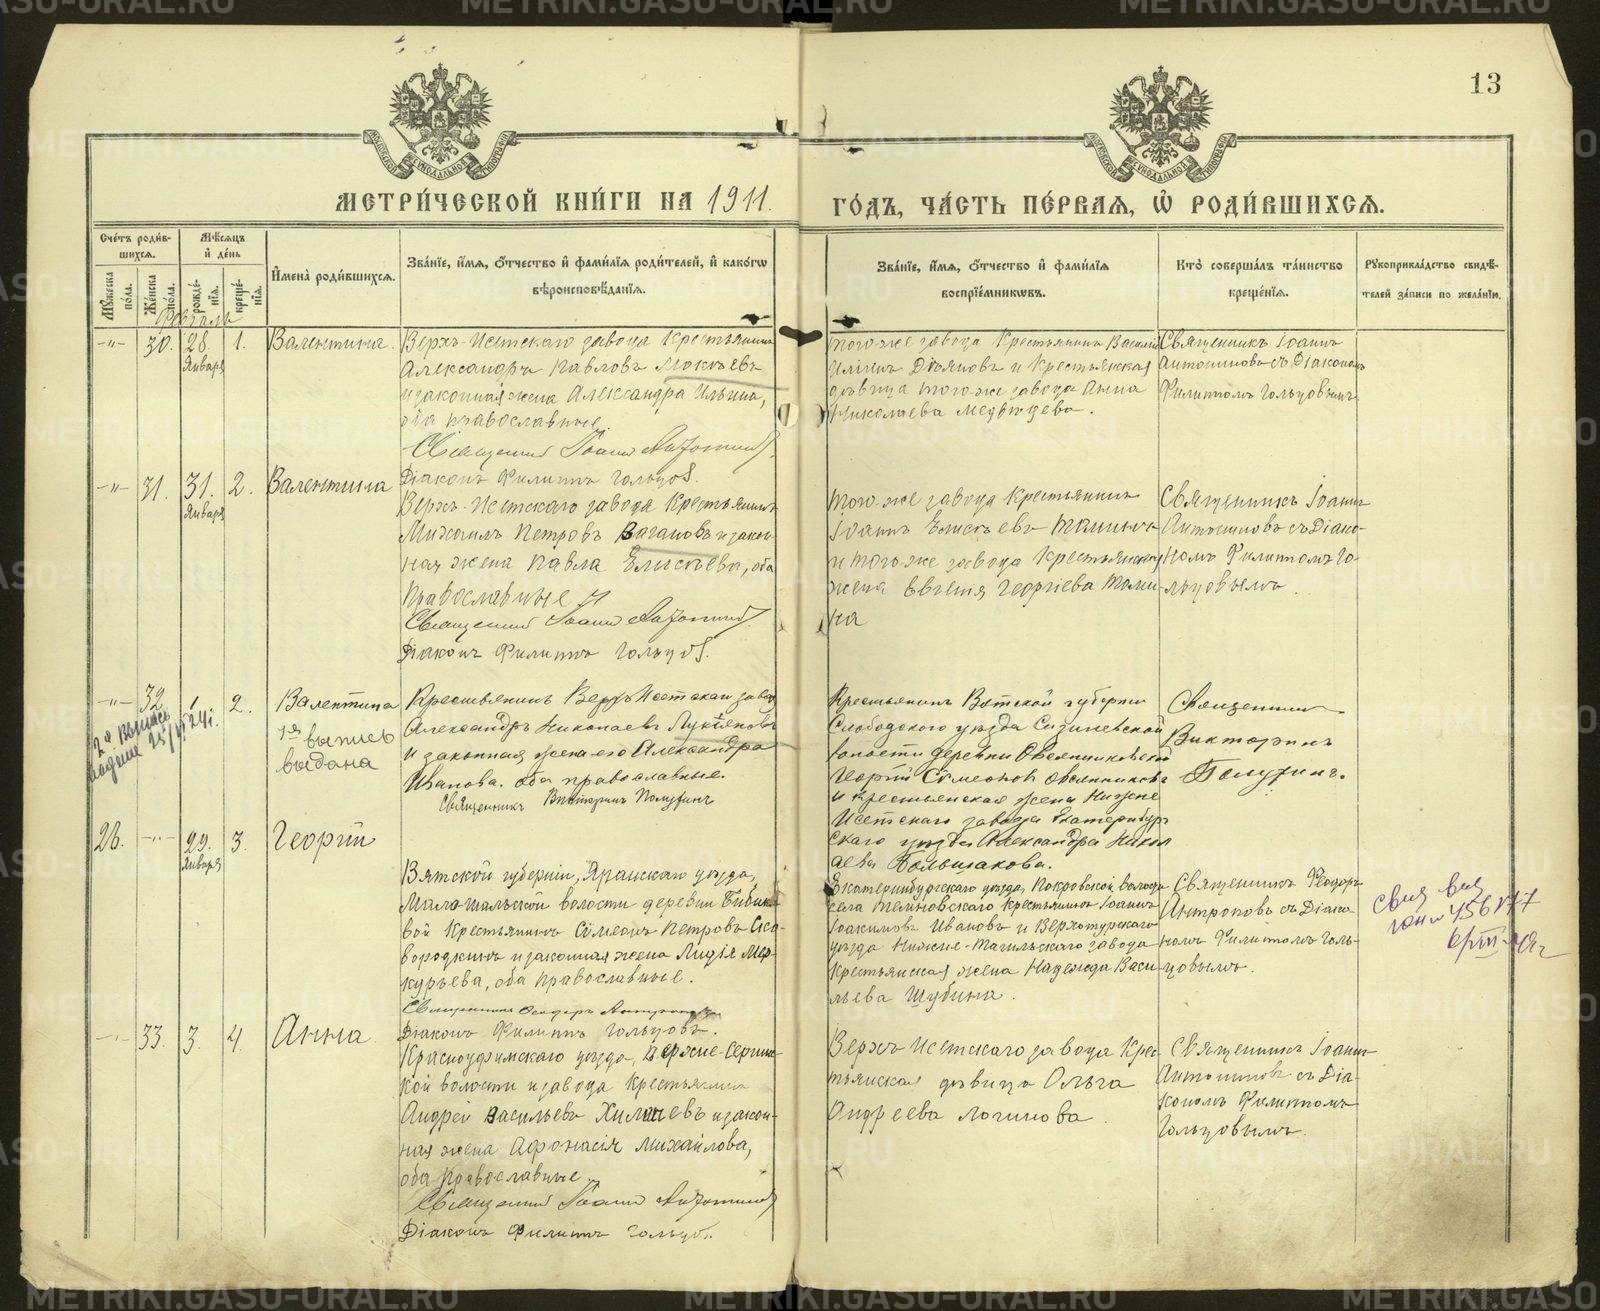 13
МЕТРИ́ЧЕСКОЙ КНИ́ГИ НА 1911.
ГО́ДЪ, ЧА́СТЬ ПЕ́РВАЯ, Ѿ РОДИ́ВШИХСЯ.
Сче́тъ роди́вшихся.
Мѣ́сяцъ и де́нь
Мꙋжеска по́ла.
Же́нска по́ла.
рожде́нія.
креще́нія.
Имена̀ роди́вшихся.
Зва́ніе, и́мя, о́тчество и фами́лія роди́телей, и како́гѡ
вѣроисповѣ́данія.
Зва́ніе, и́мя, о́тчество и фами́лія
воспріе́мникѡвъ.
Кто̀ соверша́лъ та́инство
креще́нія.
Рꙋкоприкла́дство свидѣ́-
телей за́писи по жела́нію.
Февраль
-"- 30. 28 Января 1. Валентина.
Верхъ-Исетскаго завода Крестьянинъ
Александръ Павловъ Мокѣевъ
и законная жена Александра Ильина,
оба православные.
Священник Іоанн
Діаконъ Филиппъ Гольцов.
того-же завода Крестьянинъ Василій
Ильинъ и Крестьянская
дѣвица того-же завода Анна
Николаева Медвѣдева.
Священникъ Іоаннъ
Антониновъ съ Діакономъ
Филиппомъ Гольцовымъ.
-"- 31. 31. Января 2. Валентина
Верхъ-Исетскаго завода Крестьянинъ
Михаилъ Петровъ Ваганов и закон-
ная жена Павла Елисѣева, оба
Православные
Священник Іоанн
Діаконъ Филиппъ Гольцов.
того-же завода Крестьянинъ
Іоаннъ Елисѣевъ
и того-же завода Крестьянская
жена Евгенія Георгіева
Священникъ Іоаннъ
Антониновъ съ Діако-
номъ Филиппомъ Го-
льцовымъ.
-"- 32 1. 2. Валентина
1я выпись
выдана
2я выпись
Крестьянинъ Верхъ Исетскаго завод
Александръ Николаевъ Лукіяновъ
и законная жена его Александра
Иванова. оба православные.
Священникъ Викторинъ Полузинъ
Крестьянинъ Вятской губерніи
Слободского уѣзда
волости деревни
Георгій Сѵмеонов
и крестьянская жена Нижне
Исетскаго завода Екатеринбур
скаго уѣзда Александра Никол
аева Большакова.
Священник
Викторинъ
26. -"- 29. Января 3. Георгій
Вятской губерніи, Яранскаго уѣзда,
волости деревни
вой Крестьянинъ Сѵмеонъ Петровъ Ско-
вородкинъ и законная жена Лидія Мер-
курьева, оба Православные.
Діаконъ Филиппъ Гольцовъ.
Екатеринбургскаго уѣзда, Покровской волости
села Крестьянинъ Іоаннъ
Іоакимовъ Ивановъ и Верхотурскаго
уѣзда Нижне-Тагильскаго завода
Крестьянская жена Надежда Васи-
льева Шубина.
Священникъ Ѳеодоръ
Антроповъ съ Діако-
номъ Филиппомъ Голь-
цовымъ.
33. 3. 4. Анна.
Красноуфимскаго уѣзда, Верхне-Сергин-
ской волости и завода Крестьянинъ
Андрей Васильевъ и закон-
ная жена Афонасія Михайлова,
оба Православные.
Священник Іоанн
Діаконъ Филиппъ Гольцов.
Верхъ Исетскаго завода Крес-
тьянская дѣвица Ольга
Андреева Логинова.
Священникъ Іоаннъ
Антониновъ съ Діа-
кономъ Филиппомъ
Гольцовымъ.
METRIKI.GASO-URAL.RU